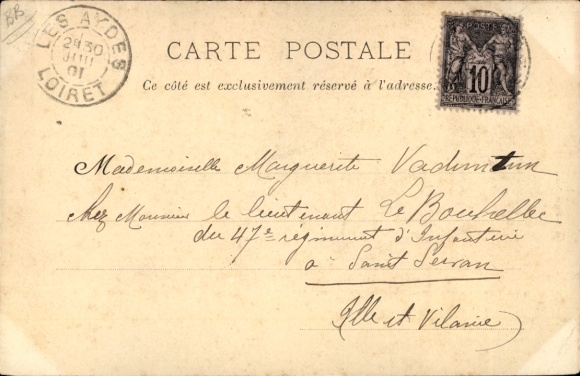 BB
LES AYDES
2E 30
JUIL
01
LOIRET
CARTE POSTALE
POSTES
10
REPUBLIQUE FRANÇAISE
Ce côté est exclusivement réservé à l'adresse.
Mademoiselle Marguerite
chez Monsieur le lieutenant Le Bouhellec
du 47e régiment d'Infanterie
à Saint Servan
Ille et Vilaine